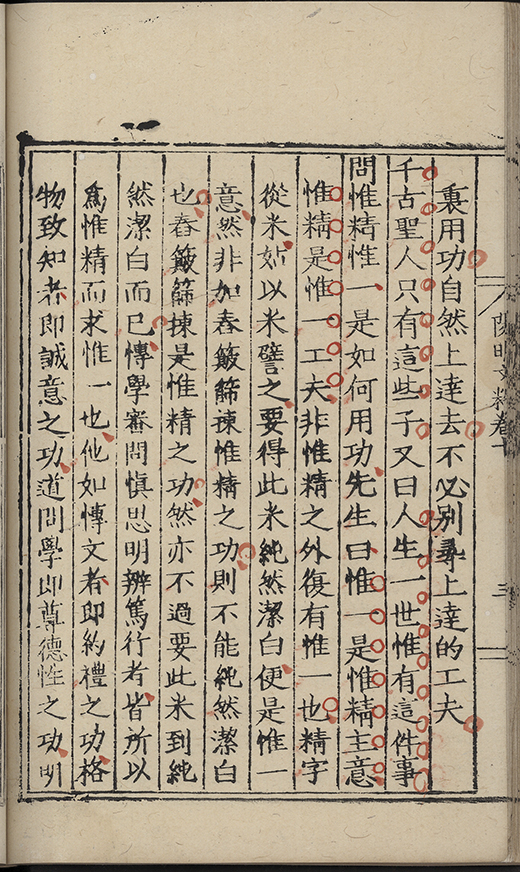 裏用功自然上達去不必別尋上達的工夫
千古聖人只有這些子又曰人生一世惟有這件事
問惟精惟一是如何用功先生曰惟一是惟精主意
惟精是惟一工夫非惟精之外復有惟一也精字
從米姑以米譬之要得此米純然潔白便是惟一
意然非加舂簸篩揀惟精之功則不能純然潔白
也舂簸篩揀是惟精之功然亦不過要此米到純
然潔白而已愽學審問慎思明辨篤行者皆所以
爲惟精而求惟一也他如愽文者即約禮之功格
物致知者即誠意之功道問學即尊德性之功明
陽明文粹卷十
三